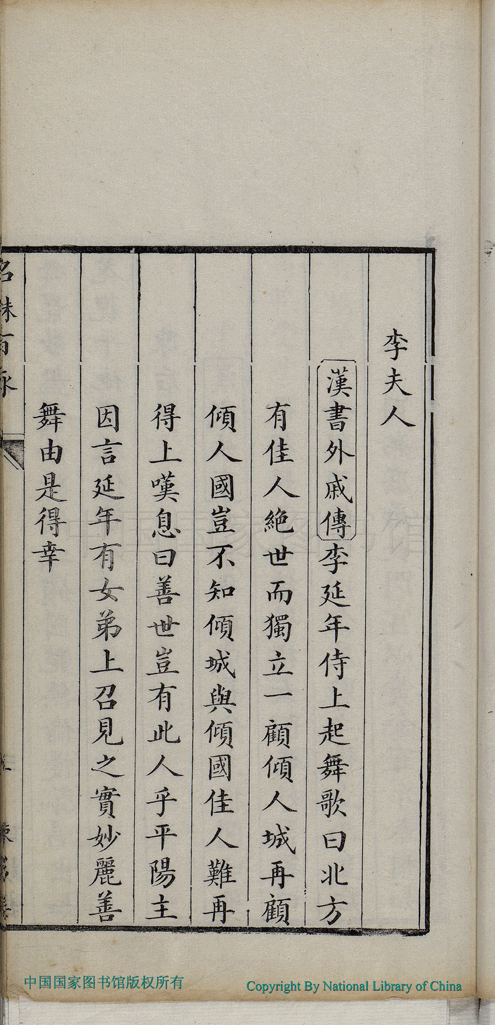 李夫人
漢書外戚傳李延年侍上起舞歌曰北方
有佳人絶世而獨立一顧傾人城再顧
傾人國豈不知傾城與傾國佳人難再
得上嘆息曰善世豈有此人乎平陽主
因言延年有女弟上召見之實妙麗善
舞由是得幸
中国国家图书馆版权所有
Copyright By National Library of China